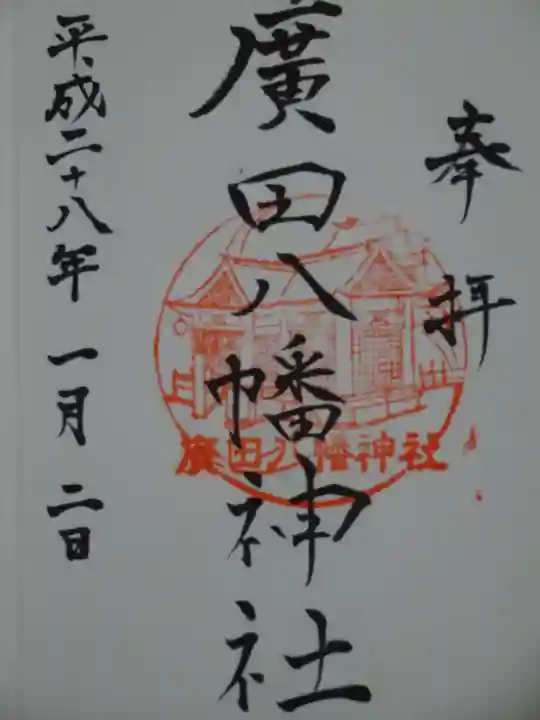 奉拝
廣田八幡神社
廣田八幡神社
平成二十八年一月二日